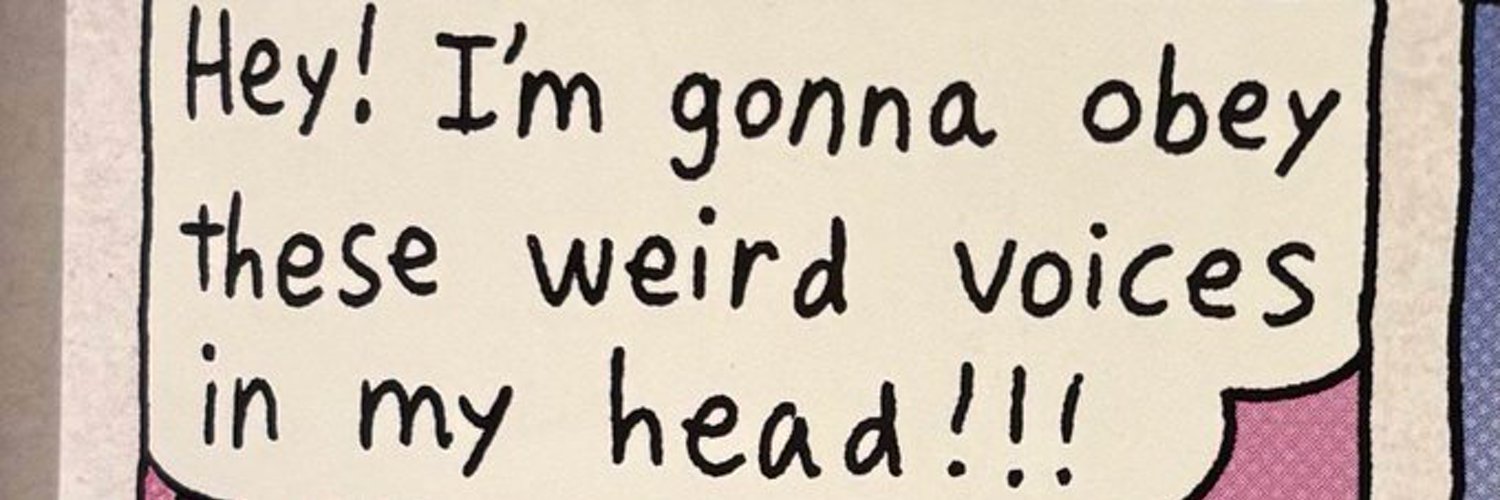 Hey! I'm gonna obey
these weird voices
in my head!!!